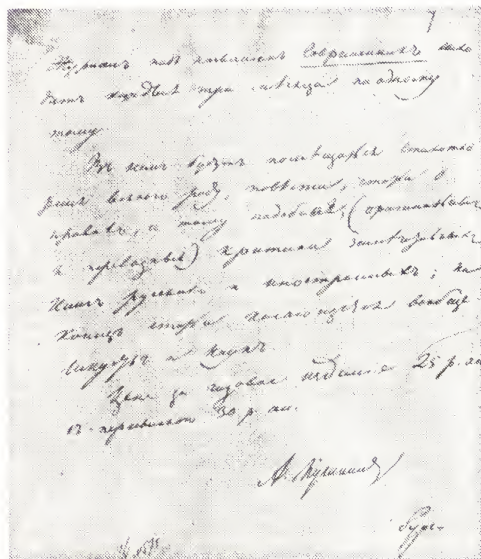 Журнал под названием Современник выхо
дит каждые три месяца по одному
тому
В нем будут помещаться стихотво
рения всякого роду, повести, статьи о
нравах, и тому подобные, (оригинальные
и переводные) критики замечательных
книг русских и иностранных; на
конец статьи касающиеся вообще
Искусств и наук.
Цена за годовое издание 25 р. ас.
с пересылкою 30 р. ас.
А. Пушкин